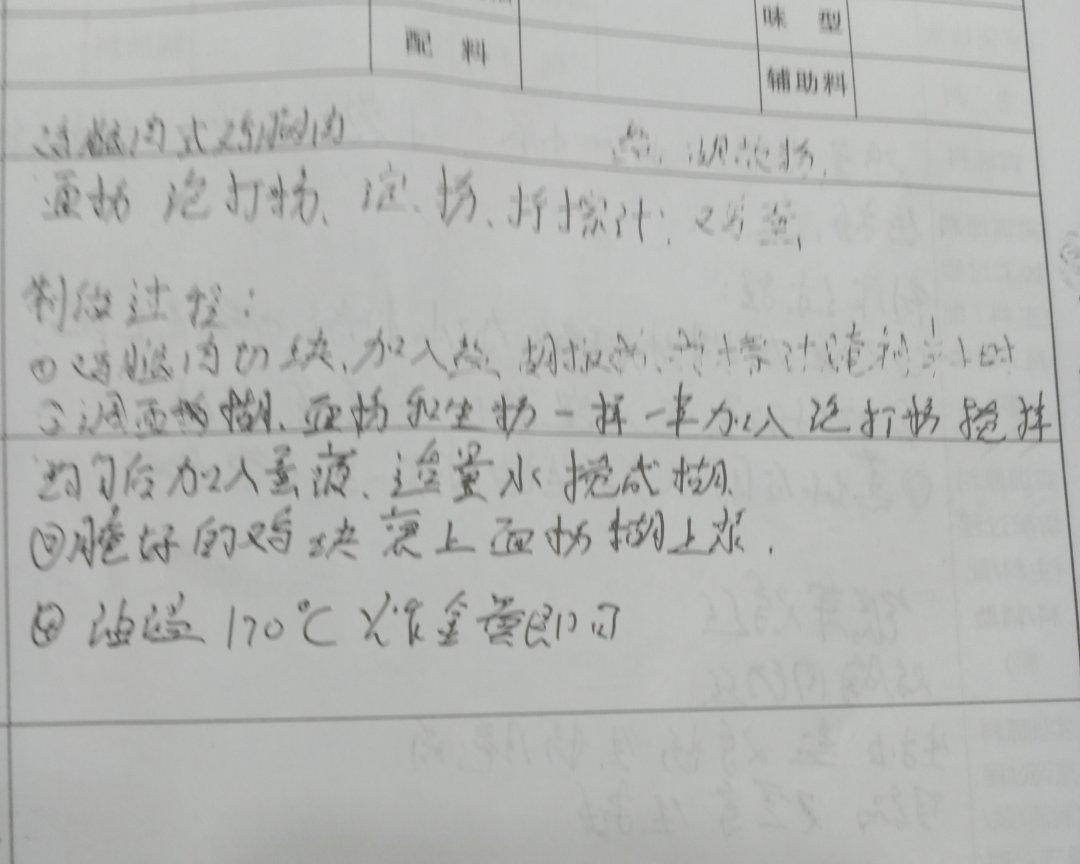 味 型
配 料
辅助料
鸡腿肉或鸡胸肉 盐、胡椒粉、
面粉 泡打粉、淀、粉、柠檬汁、鸡蛋、
制作过程:
①鸡腿肉切块、加入盐、胡椒粉、柠檬汁腌制半小时
②调面粉糊、面粉和生粉一样一半加入泡打粉搅拌
均匀后加入蛋液、适量水搅成糊、
③腌好的鸡块裹上面粉糊上浆.
④油温170℃炸金黄即可